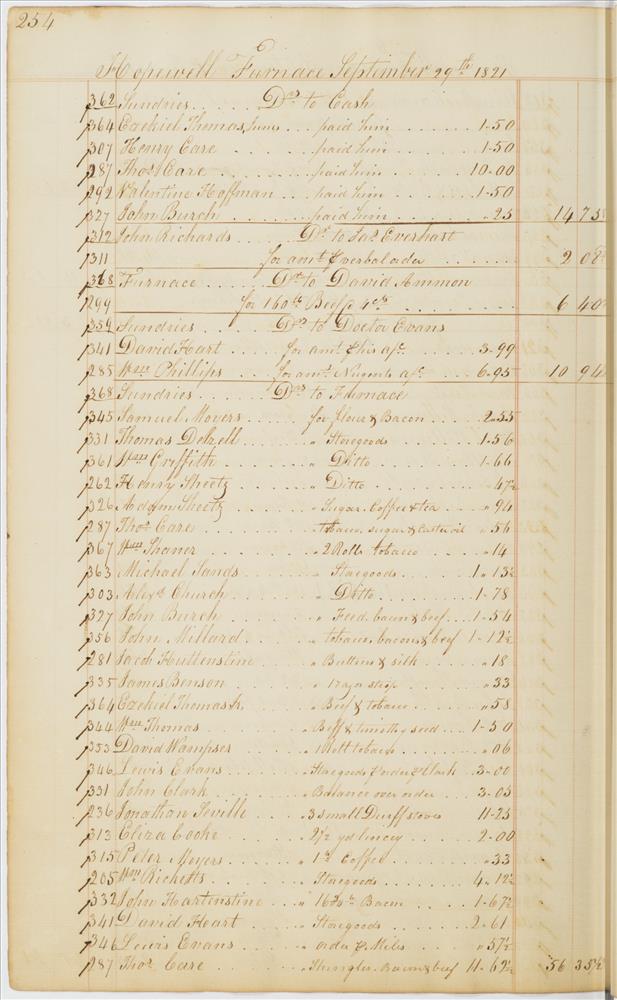 254
Hopewell Furnace September 29th 1821
362 Sundries . . . . . Drs to Cash
364 Ezekiel Thomas, Junr . . . paid him . . . . . . 1-50
307 Henry Care . . . . . paid him . . . . . . 1-50
287 Thos Care . . . . . paid him . . . . . 10-00
292 Valentine Hoffman . . . paid him . . . . . 1-50
327 John Burch . . . . . paid him . . . . . " 25 14 75
312 John Richards . . . . Dr to Jas Everhart
311 for amt of verbal order . . . . . . . 2 08
368 Furnace . . . . . Dr to David Ammon
299 for 160 lb Beef @ 4cts . . . . . . . . 6 40
359 Sundries . . . . . Drs to Doctor Evans
341 David Hart . . . . for amt of his a/c . . . . 3-99
285 Wm Phillips . . . for amt a/c . . . . 6-95 10 94
368 Sundries . . . . . Drs to Furnace
345 Samuel Moyers . . . . . for flour & Bacon . . . . 2-55
331 Thomas Delzell . . . . . " Storegoods . . . . 1-56
361 Wm Griffith . . . . . " Ditto . . . . . 1-66
262 Henry Sheetz . . . . . " Ditto . . . . . " 47½
326 Adam Sheetz . . . . . " Sugar, Coffee & tea . . . " 94
287 Thos Care . . . . . " tobacco, sugar & Castor oil " 56
367 Wm Shaner . . . . . " 2 Rolls tobacco . . . . " 14
363 Michael Sands . . . . . " Storegoods . . . . . 1 " 13½
303 Alexr Church . . . . . " Ditto . . . . . 1-78
327 John Burch . . . . . " Feed, bacon & beef . . . 1-54
356 John Millard . . . . . " tobacco, bacon & beef 1-12½
281 Jacob Huttenstine . . . . . " Buttons & silk . . . . " 18
335 James Benson . . . . . " 1 razor strop . . . . " 33
364 Ezekiel Thomas Jr. . . . . " Beef & tobacco . . . . " 58
344 Wm Thomas . . . . . " Beff & timothy seed . . . 1-50
353 David Wampses . . . . . " 1 Roll tobacco . . . . . " 06
346 Lewis Evans . . . . . " Storegoods & order Clark . 3-00
331 John Clark . . . . . " Balance over order . . . 3-05
236 Jonathan Seville . . . . " 3 small stoves 11-25
313 Eliza Cooke . . . . . " 2½ yd lincey . . . . . 2-00
315 Peter Moyers . . . . . " 1 lb Coffee . . . . . " 33
205 Wm Ricketts . . . . . " Storegoods . . . . . 4 " 12½
332 John Hartenstine . . . " 16¾ lb Bacon . . . . 1-67½
341 David Heart . . . . . " Storegoods . . . . . 2-61
346 Lewis Evans . . . . . " order Miles . . . . " 57½
287 Thos Care . . . . . " Shingles, Bacon & beef 11-69½ 56 35½